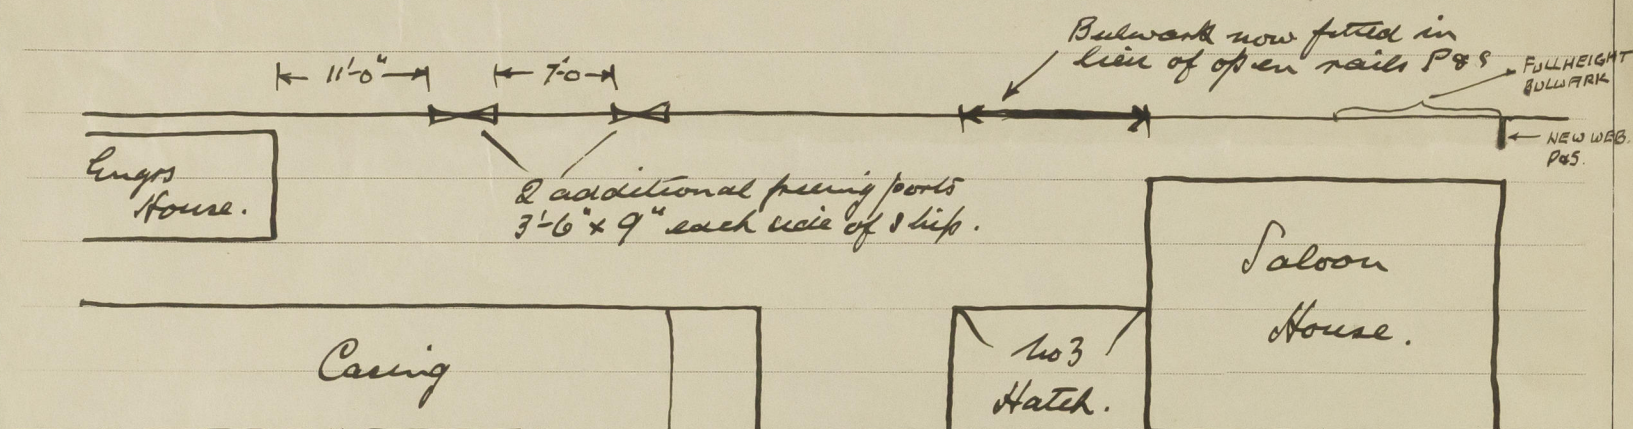 Bulwark now fitted in
lieu of open rails P&S
FULLHEIGHT
BULWARK
11'-0"
7'-0
NEW WEB.
P&S.
Engrs
House.
2 additional freeing ports
3'-6" x 9" each side of ship.
Saloon
House.
Casing
No3
Hatch.